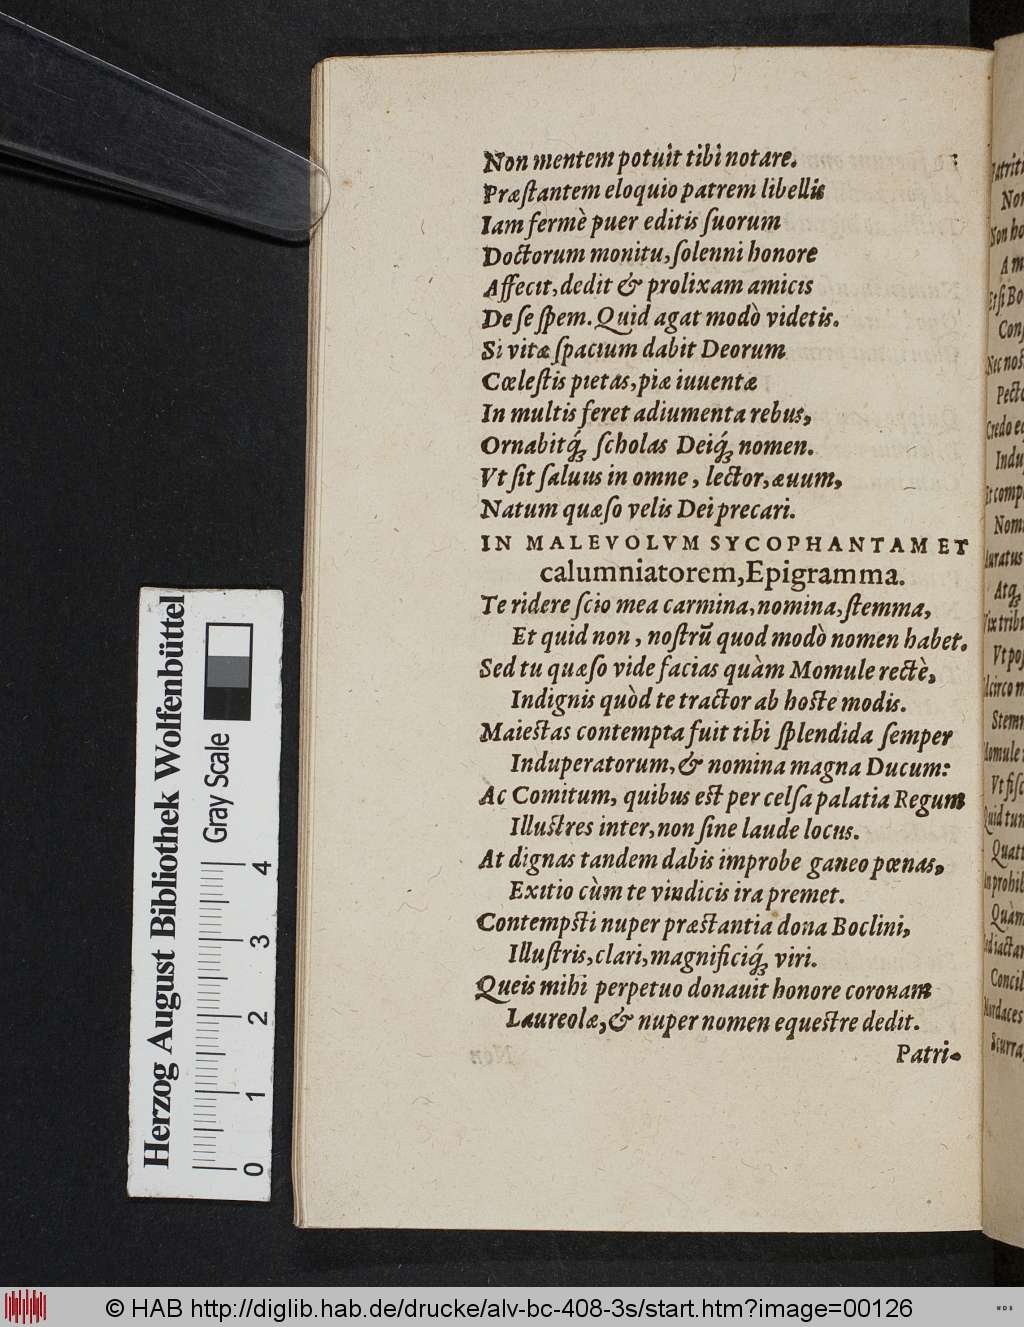 Non mentem potuit tibi notare.
Præſtantem eloquio patrem libellis
Iam fermè puer editis ſuorum
Doctorum monitu, ſolenni honore
Affecit, dedit & prolixam amicis
De ſe ſpem. Quid agat modò videtis.
Si vitæ ſpacium dabit Deorum
Cœleſtis pietas, piæ iuuentæ
In multis feret adiumenta rebus,
Ornabitq́ꝫ ſcholas Deiq́ꝫ nomen.
Vt ſit ſaluus in omne, lector, æuum,
Natum quæſo velis Dei precari.
IN MALEVOLVM SYCOPHANTAM ET
calumniatorem, Epigramma.
Te ridere ſcio mea carmina, nomina, ſtemma,
Et quid non, noſtrũ quod modò nomen habet.
Sed tu quæſo vide facias quàm Momule rectè,
Indignis quòd te tractor ab hoſte modis.
Maieſtas contempta fuit tibi ſplendida ſemper
Induperatorum, & nomina magna Ducum:
Ac Comitum, quibus eſt per celſa palatia Regum
Illuſtres inter, non ſine laude locus.
At dignas tandem dabis improbe ganeo pœnas,
Exitio cùm te vindicis ira premet.
Contempſti nuper præſtantia dona Boclini,
Illuſtris, clari, magnificiq́ꝫ viri.
Queis mihi perpetuo donauit honore coronam
Laureolæ, & nuper nomen equeſtre dedit.
Patri-
Herzog August Bibliothek Wolfenbüttel
Gray Scale
0 1 2 3 4
© HAB http://diglib.hab.de/drucke/alv-bc-408-3s/start.htm?image=00126